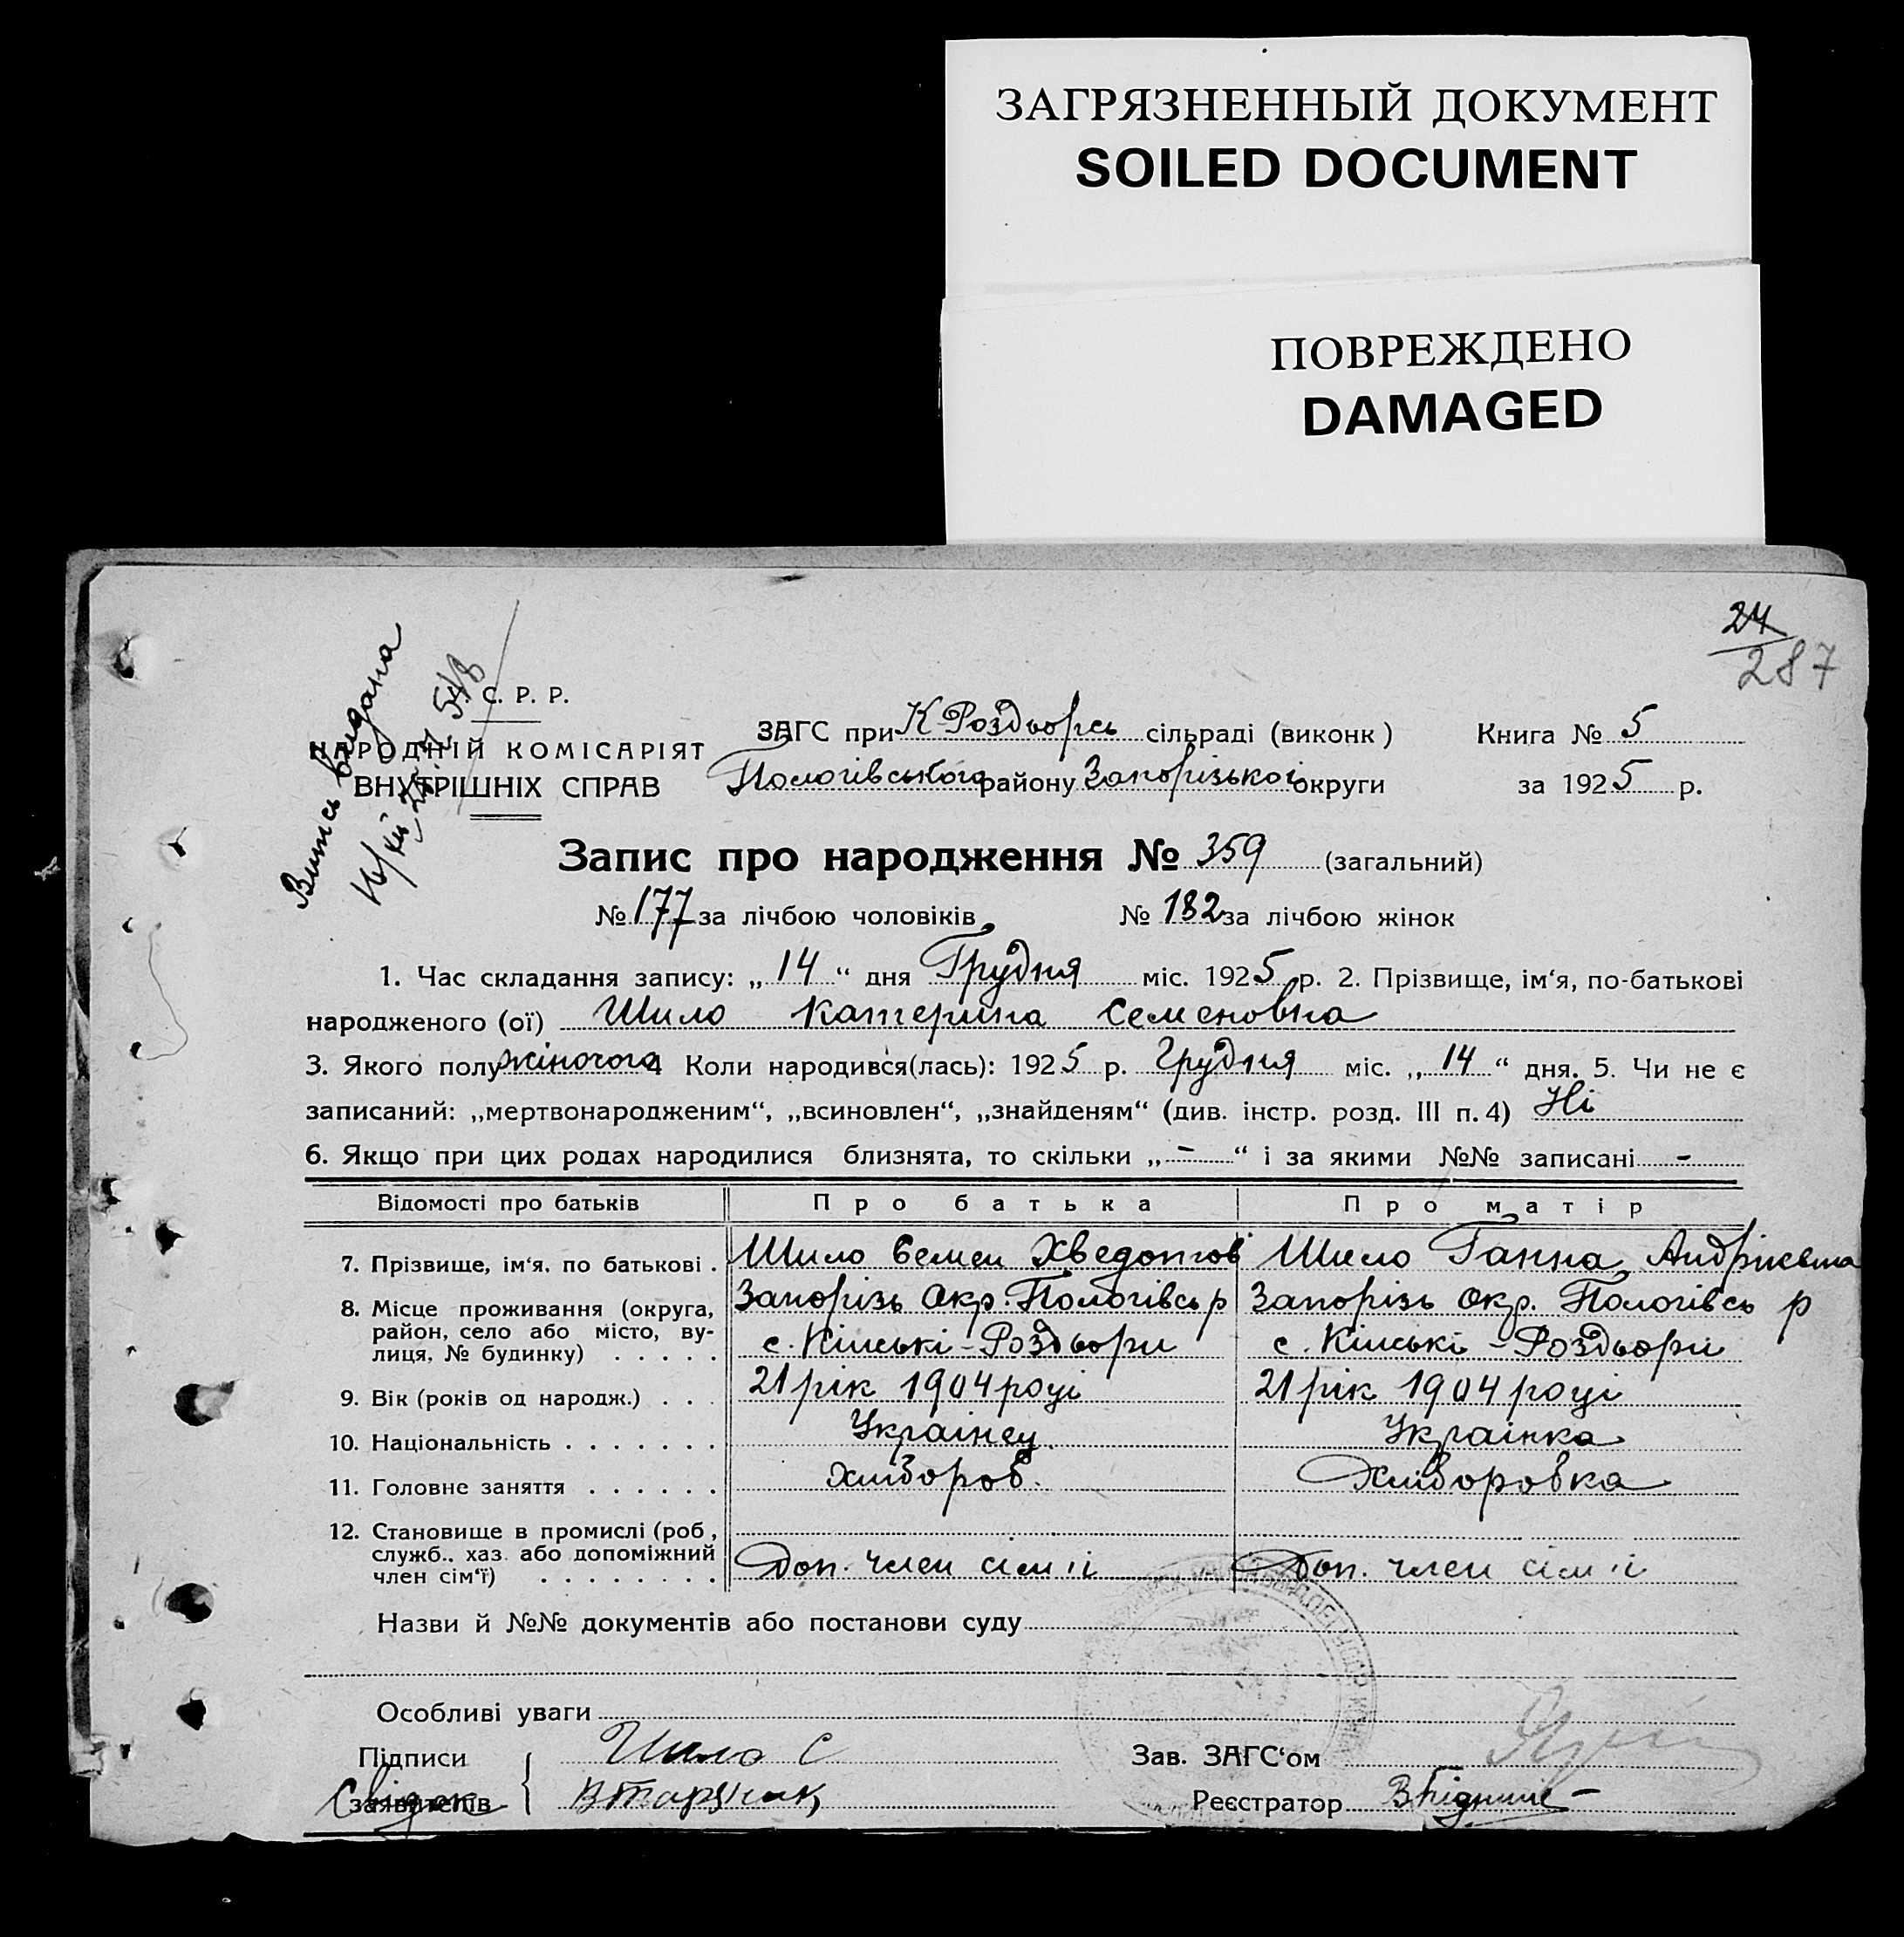 ЗАГРЯЗНЕННЫЙ ДОКУМЕНТ
SOILED DOCUMENT
ПОВРЕЖДЕНО
DAMAGED
24
287
Витсь видана
С. Р. Р.
НАРОДНІЙ КОМІСАРІЯТ
ВНУТРІШНІХ СПРАВ
ЗАГС при К-Роздьорсь сільраді (виконк) Книга № 5
Пологівського району Запорізької округи за 1925 р.
Запис про народження № 359 (загальний)
№ 177 за лічбою чоловіків № 182 за лічбою жінок
1. Час складання запису: „14“ дня Грудня міс. 1925 р. 2. Прізвище, ім‘я, по-батькові
народженого (ої) Шило Катерина Семеновна
3. Якого полу жіночого 4 Коли народився(лась): 1925 р. Грудня міс. „14“ дня. 5. Чи не є
записаний: „мертвонародженим“, „всиновлен“, „знайденям“ (див. інстр. розд. III п. 4) Ні
6. Якщо при цих родах народилися близнята, то скільки „-“ і за якими №№ записані -
Відомості про батьків Про батька Про матір
7. Прізвище, ім‘я, по батькові . Шило Семен Хведотов Шило Ганна Андріевна
8. Місце проживання (округа, район, село або місто, ву-лиця, № будинку) . . . . . Запорізь Окр. Пологівсь р Запорізь окр. Пологівсь р
с. Кінські-Роздьори с. Кінські-Роздьори
9. Вік (років од народж.) . . . 21 рік 1904 році 21 рік 1904 році
10. Національність . . . . . . . Українец Українка
11. Головне заняття . . . . . . Хлібороб. Хліборобка
12. Становище в промислі (роб, служб., хаз. або допоміжний член сім‘ї) . . . . . . . . Доп. член сім'ї Доп. член сім'ї
Назви й №№ документів або постанови суду
Особливі уваги
Підписи Шило С Зав. ЗАГС‘ом
заявителів Свідок Реєстратор